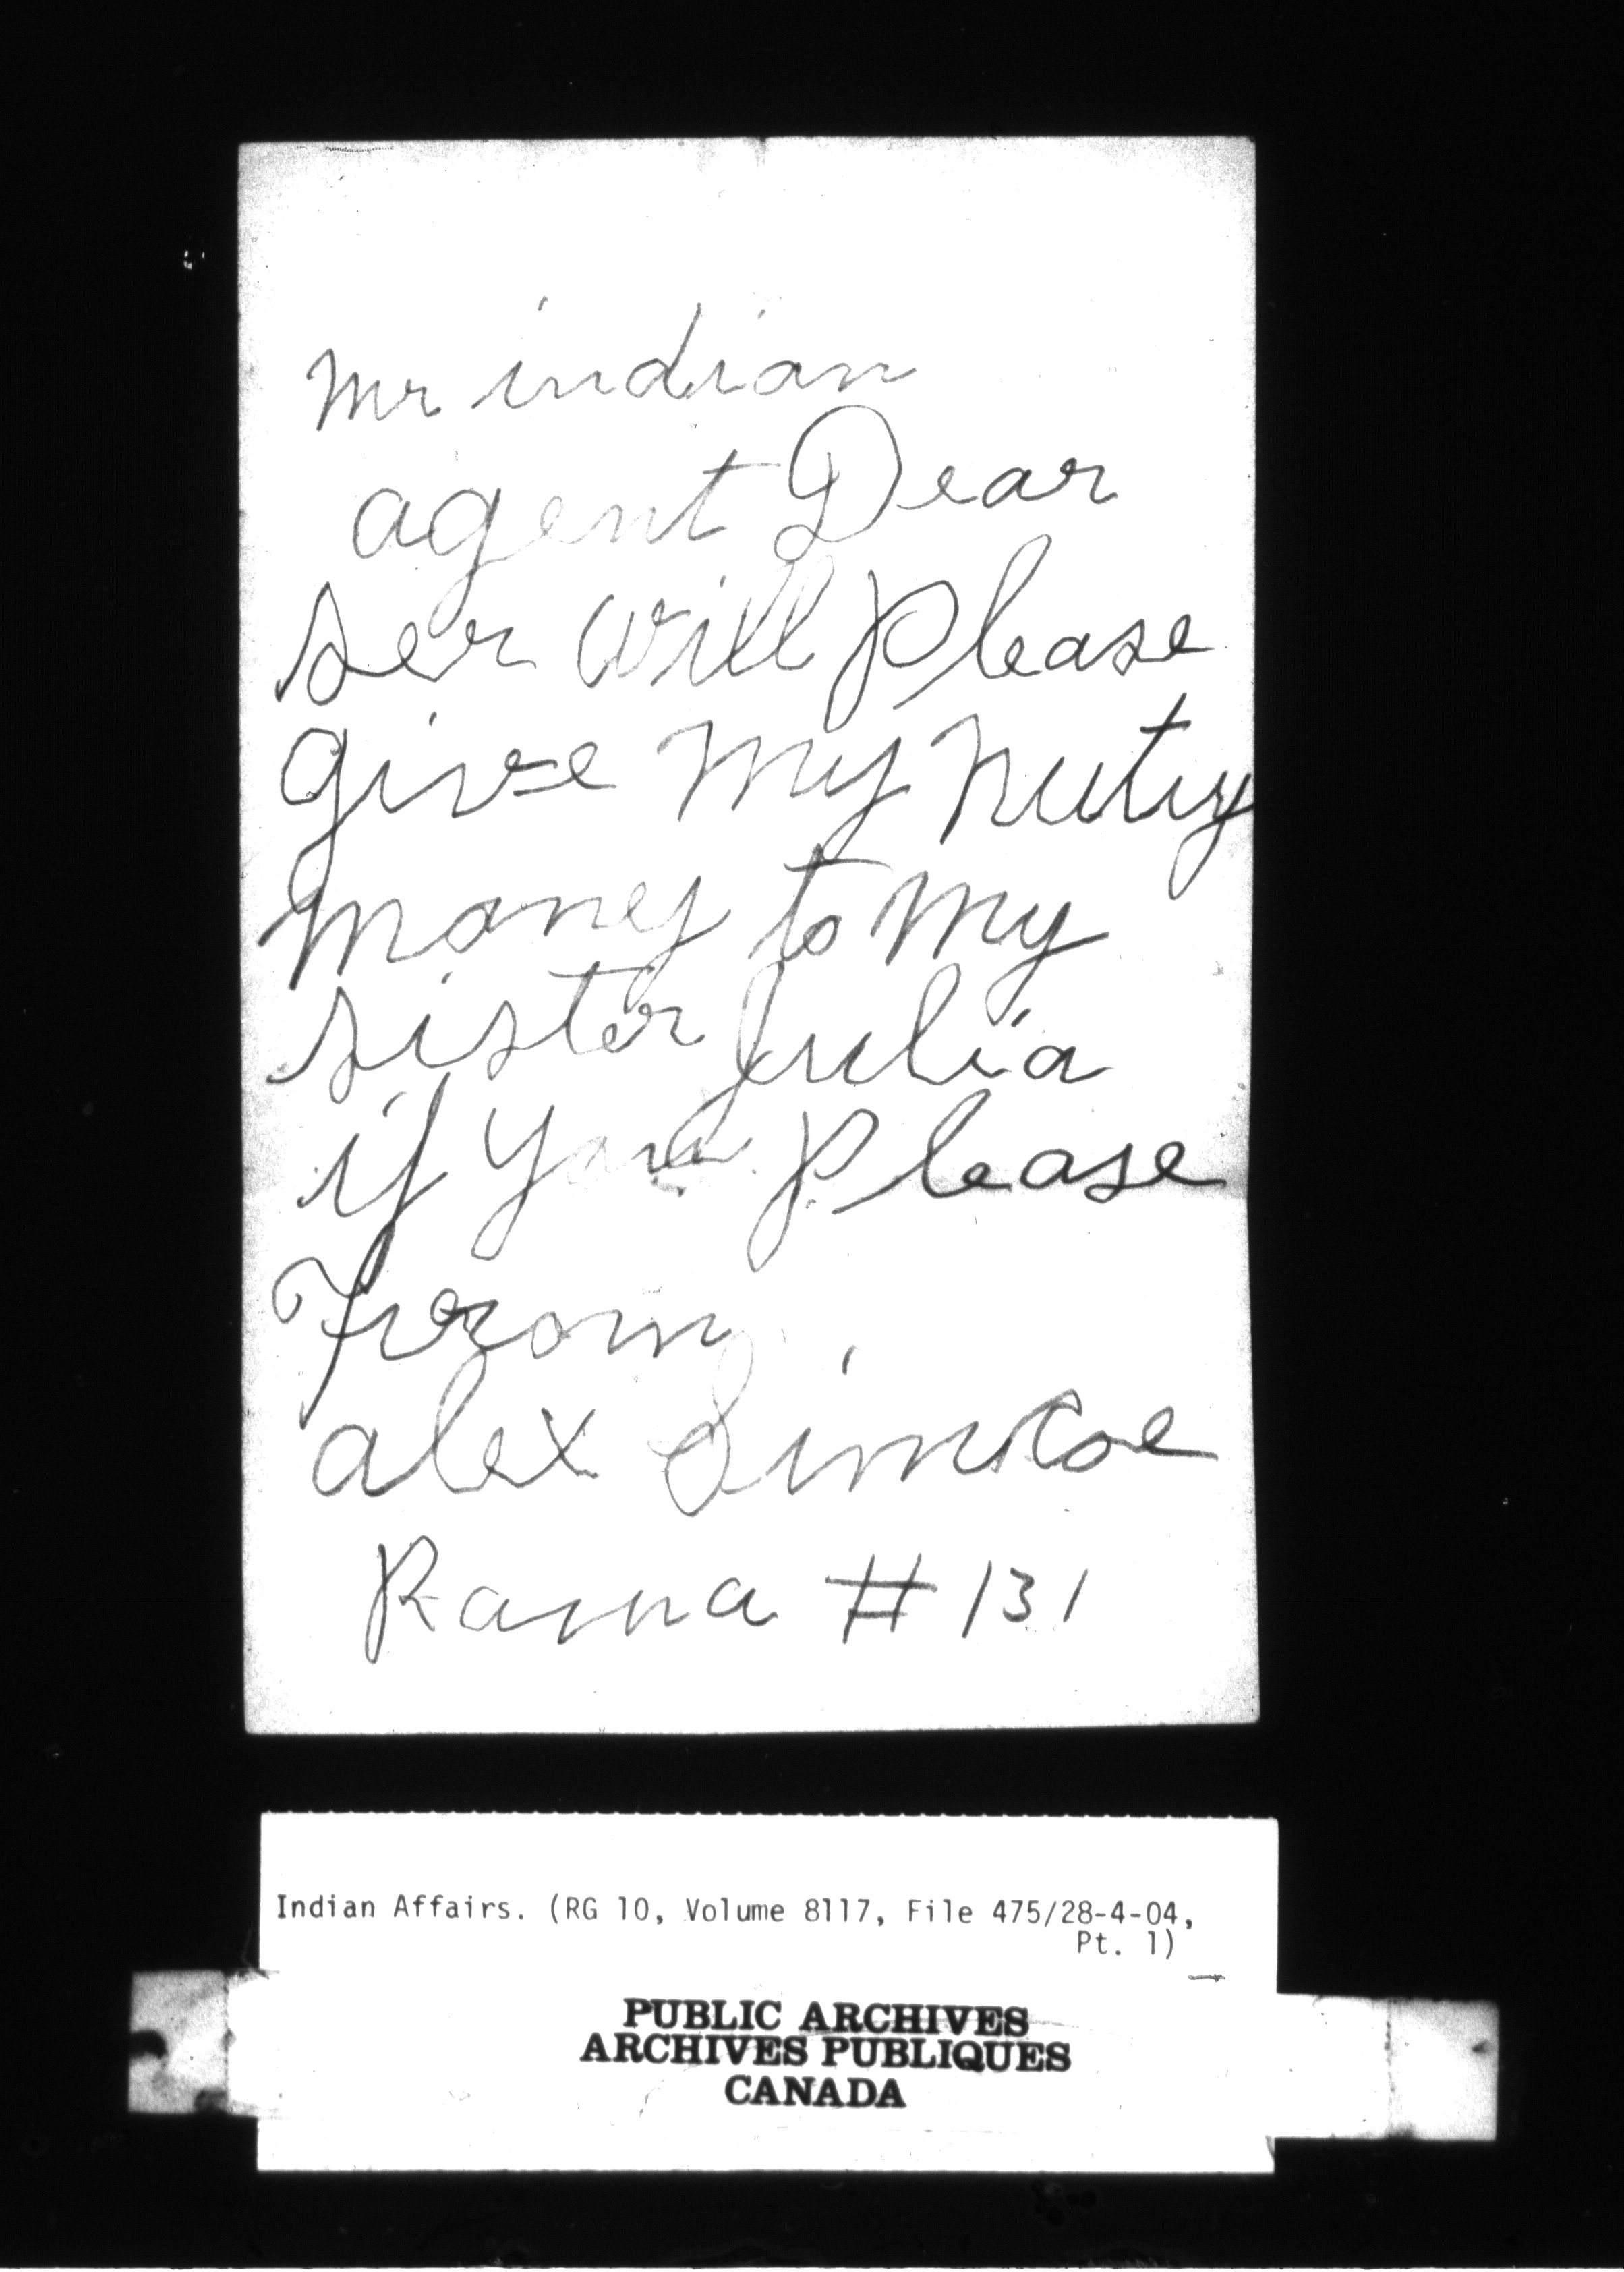 Mr indian
agent Dear
ser will Please
give my nutiy
money to my
sister Julia
if you Please
From
alex Simcoe
Rama # 131
Indian Affairs. (RG 10, Volume 8117, File 475/28-4-04,
Pt. 1)
PUBLIC ARCHIVES
ARCHIVES PUBLIQUES
CANADA